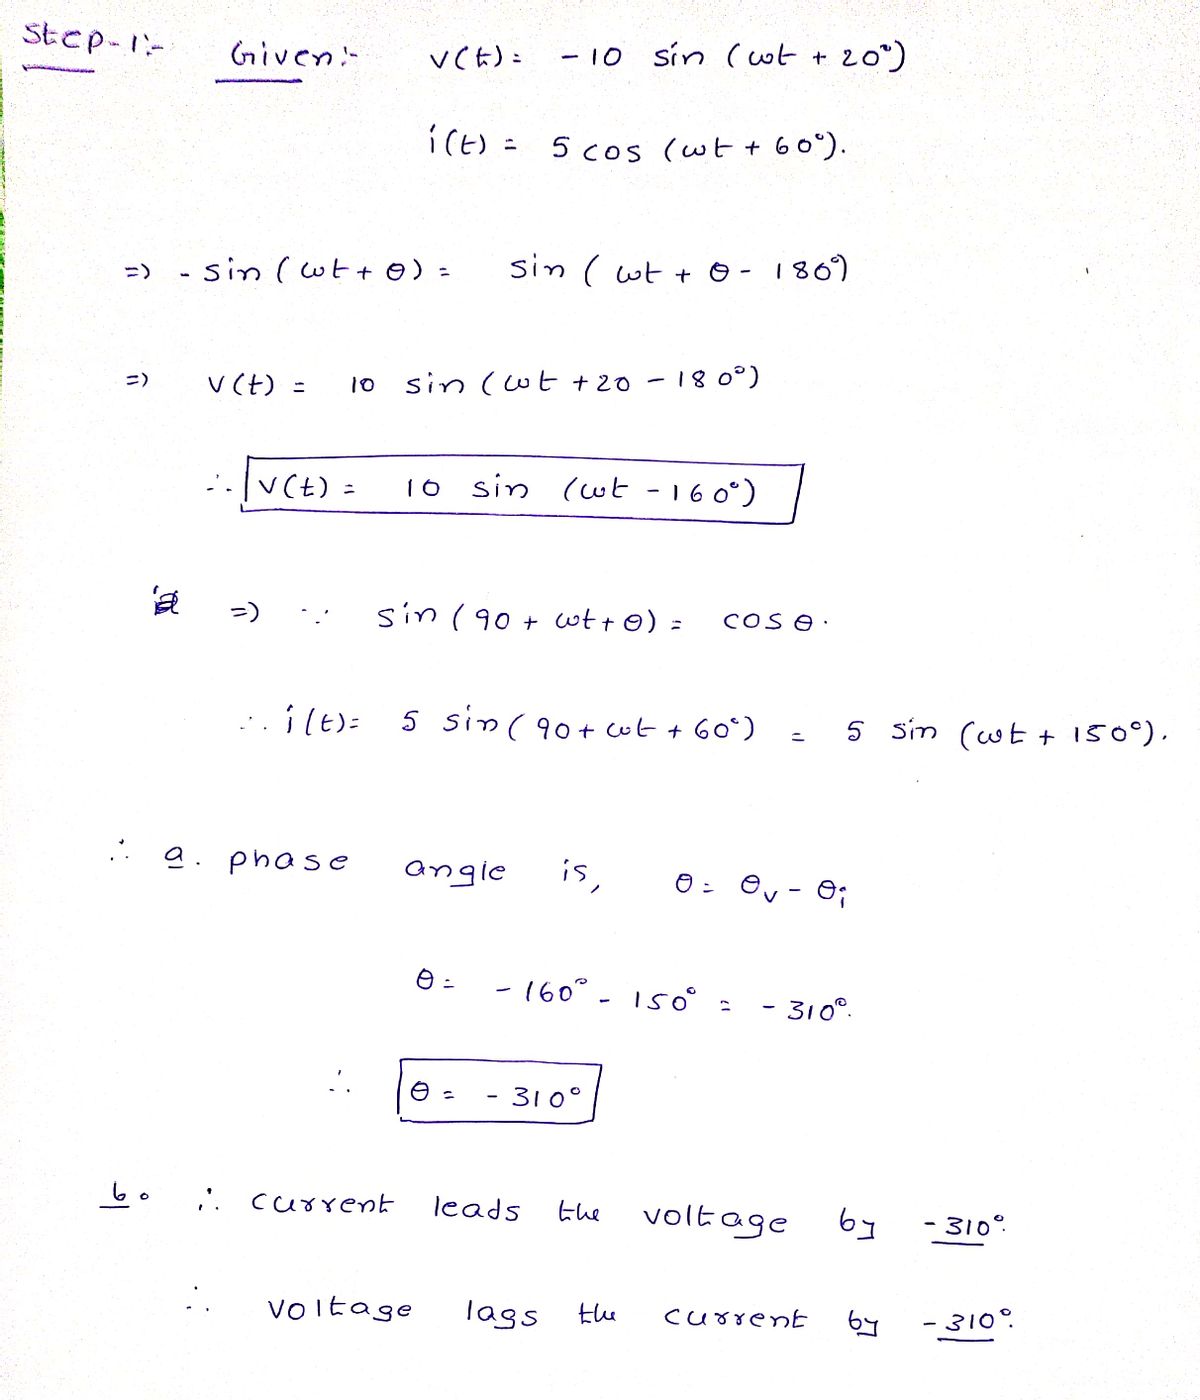 Step-1:- Given:- v(t) = -10 sin (ωt + 20°)
i(t) = 5 cos (ωt + 60°).
=) - sin (ωt + θ) = sin ( ωt + θ - 180°)
=) V(t) = 10 sin (ωt +20 - 180°)
∴ V(t) = 10 sin (ωt - 160°)
=) ∵ sin (90 + ωt + θ) = cos θ.
∴ i(t)= 5 sin (90 + ωt + 60°) = 5 sin (ωt + 150°).
∴ a. phase angle is, θ = θv - θi
θ = - 160° - 150° = - 310°.
∴ θ = - 310°
b. ∴ current leads the voltage by - 310°.
∴ voltage lags the current by - 310°.